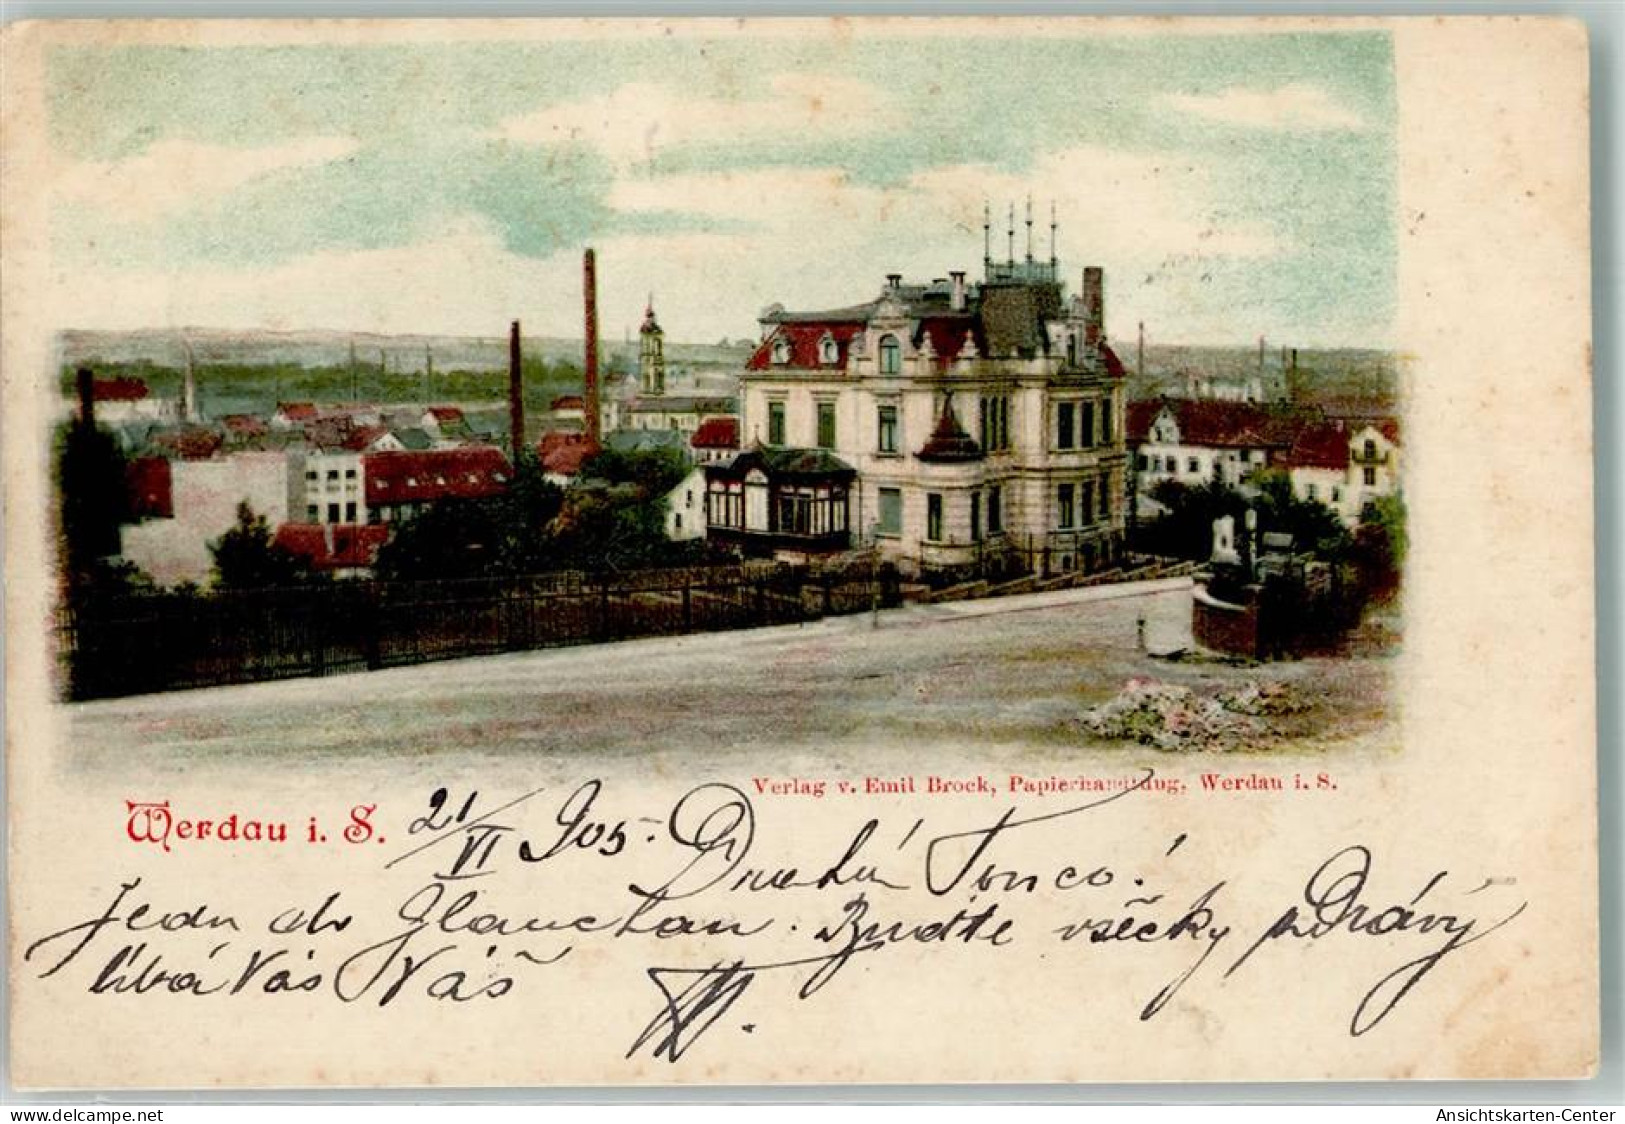 Verlag v. Emil Brock, Papierhandlung, Werdau i. S.
Werdau i. S. 21/VI 905. Drahá Tonco!
Jedu do Glauchau. Buďte všecky zdrávy
líbá Vás Váš
delcampe.net
Ansichtskarten-Center